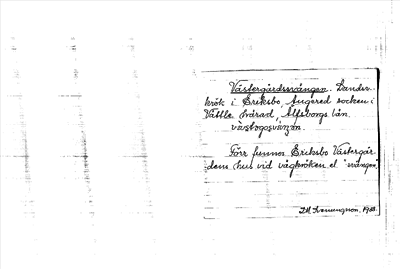 Västergårdssvängen. Landsv.
krök i Eriksbo, Angered socken i
Vättle härad, Älfsborgs län.
västogosvänjan.
Förr funnos Eriksbo Västergår-
dens hus vid vägkröken el "svängen".
1933.